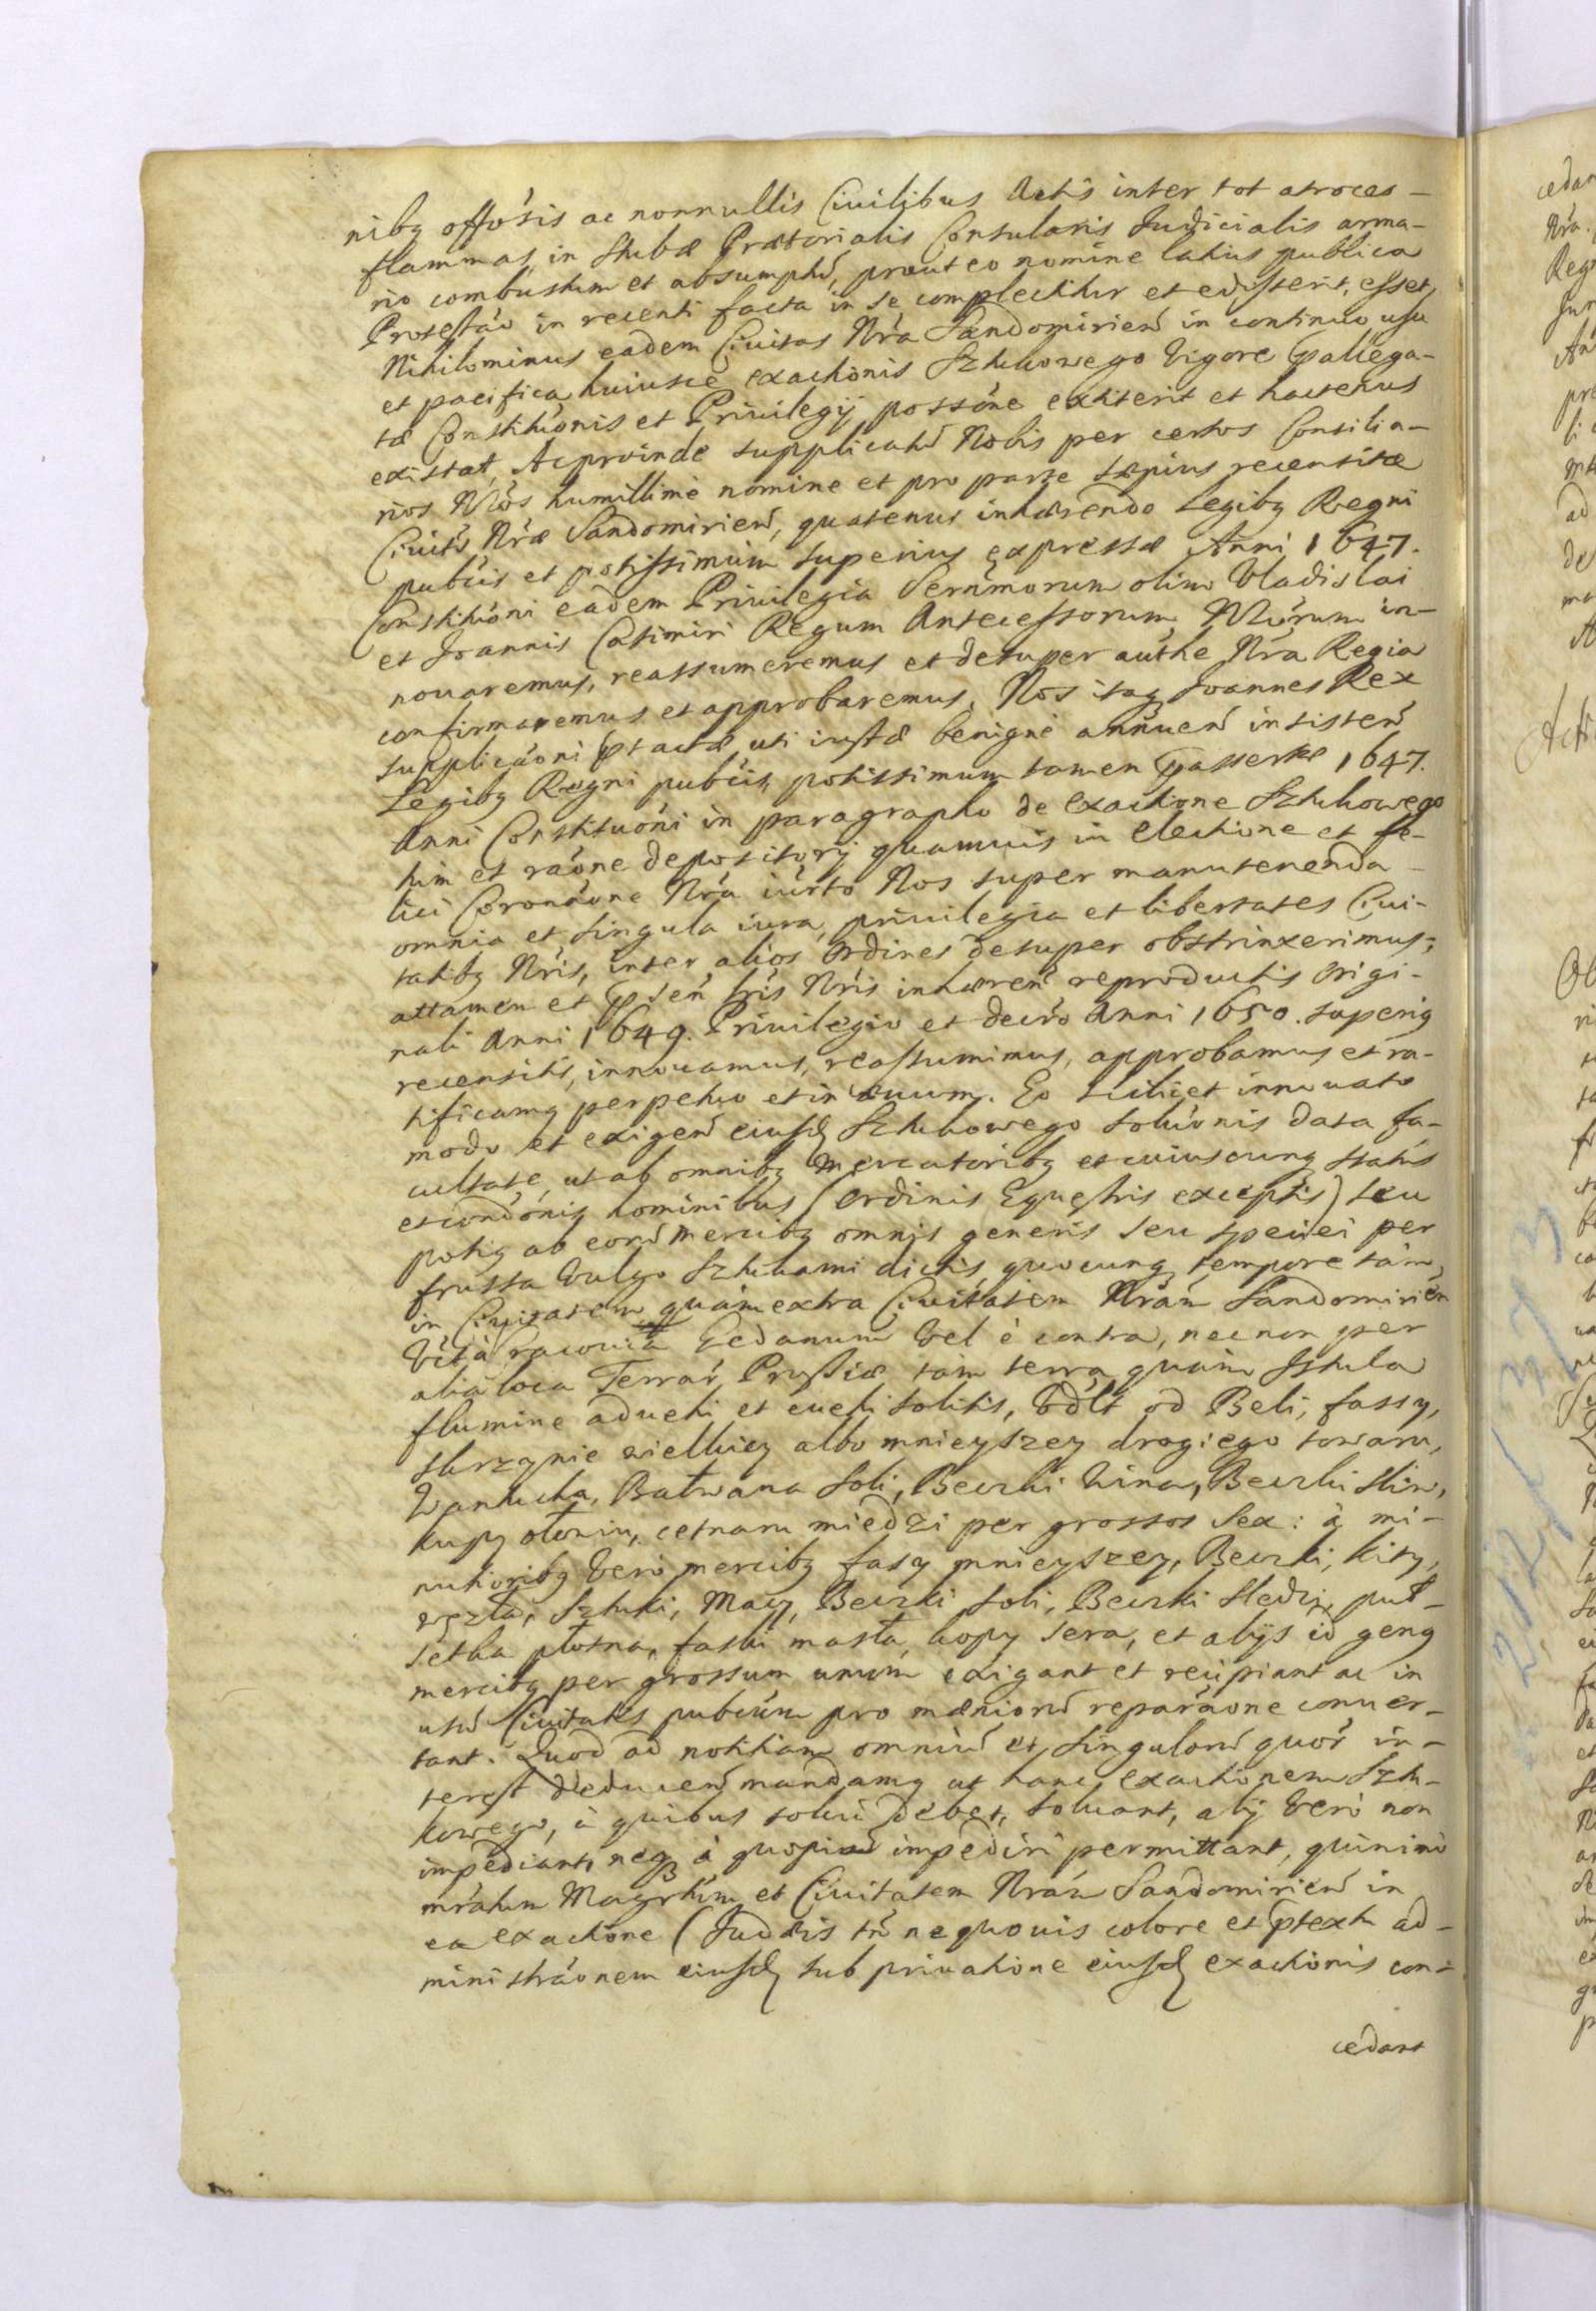 nibq offosis ac nonnullis Ciuilibus Actis inter tot atroces-
flammas, in Stuba Prætorialis Consularis Judicialis arma-
rio combustum et absumptũ, prout eo nomine latius publica
Protestáo in recenti facta in se complectitur et edisserit, esset,
Nihilominus eadem Ciuitas Nrá Sandomirień in continuo usu
et pacifica huiusce exactionis Sztukowego Vigore pallega-
tæ Constituónis et Priuilegij possóne extiterit et hactenus
existat, Acproinde supplicatũ Nobis per certos Consilia-
rios Nrós humillimè nomine et pro parte sæpius recensitæ
Ciuitis Nræ Sandomirień, quatenus inhærendo Legibq Regni
pubcis et potissimùm superius expressæ Anni 1647.
Constituóni eadem Priuilegia Serńmorum olim Vladislai
et Joannis Casimiri Regum Antecessorum Nrórum in-
nouaremus, reassumeremus et desuper autħe Nrá Regia
confirmaremus et approbaremus. Nos itaq Joannes Rex
supplicáoni ptactæ uti iustæ benignè annuen insisteń
Legibq Regni pubcis, potissimum tamen passertæ 1647.
Anni Constituóni in paragrapho de Exactione Sztukowego
tùm et raóne depositorij quamuis in Electione et fe-
lici Coronáone Nrá iúrto Nos super manutenenda-
omnia et singula iura, priuilegia et libertates Ciui-
tatibq Nrís, inter alios Ordines desuper obstrinxerimus;
attamen et pseń lrís Nrís inhæreń reproductis Origi-
nali Anni 1649. Priuilegio et decró Anni 1650. superiq
recensitis, innouamus, reassumimus, approbamus et ra-
tificamq perpetuo et in æuum. Eo scilicet innouato
modo et exigeń eiusd Sztukowego soluónis data fa-
cultate, ut ab omnibq Mercatoribq et cuiuscunq status
et condónis hominibus (Ordinis Equestris exceptis) seu
potiq ab eorũ mercibq omnis generis seu speciei per
frusta Vulgo Sztukami dictis, quocunq tempore tàm
in Ciuitatem quàm extra Ciuitatem Nrám Sandomirień
Vit à Cracouia Gedanum Vel è contra, nec non per
alia loca Terrar Prussiæ tàm terra quàm Istula
flumine aduehi et euehi solitis, Vdlt od Beli, fassy,
skrzynie wielkiey albo mnieyszey drogiego towaru,
Wantucha, Bałwana soli, Beczki Wina, Beczki śliw,
kupy ołowiu, cetnaru miedzi per grossos sex: à mi-
nutioribq Verò mercibq fasy mnieyszey, Beczki, kity,
węzła, Sztuki, Macy, Beczki soli, Beczki śledzi, puł-
setka płotna, faski masła, kopy sera, et alijs id genq
mercibq per grossum unum exigant et recipiant ac in
usũ Ciuitatis pubcum pro mæniorũ reparáone conuer-
tant. Quod ad notitiam omniũ et singulorũ quor in-
terest deduceń mandamq ut hanc exactionem Sztu-
kowego, à quibus solui debet, soluant, alij Verò non
impediant, neq à quopiam impediri permittant, quinimò
mrátum Magrtúm et Ciuitatem Nrám Sandomirień in
ea exactióne (Judæis tń ne quouis colore et ptextu ad-
ministráonem eiusd sub priuatione eiusd exactionis con-
cedant